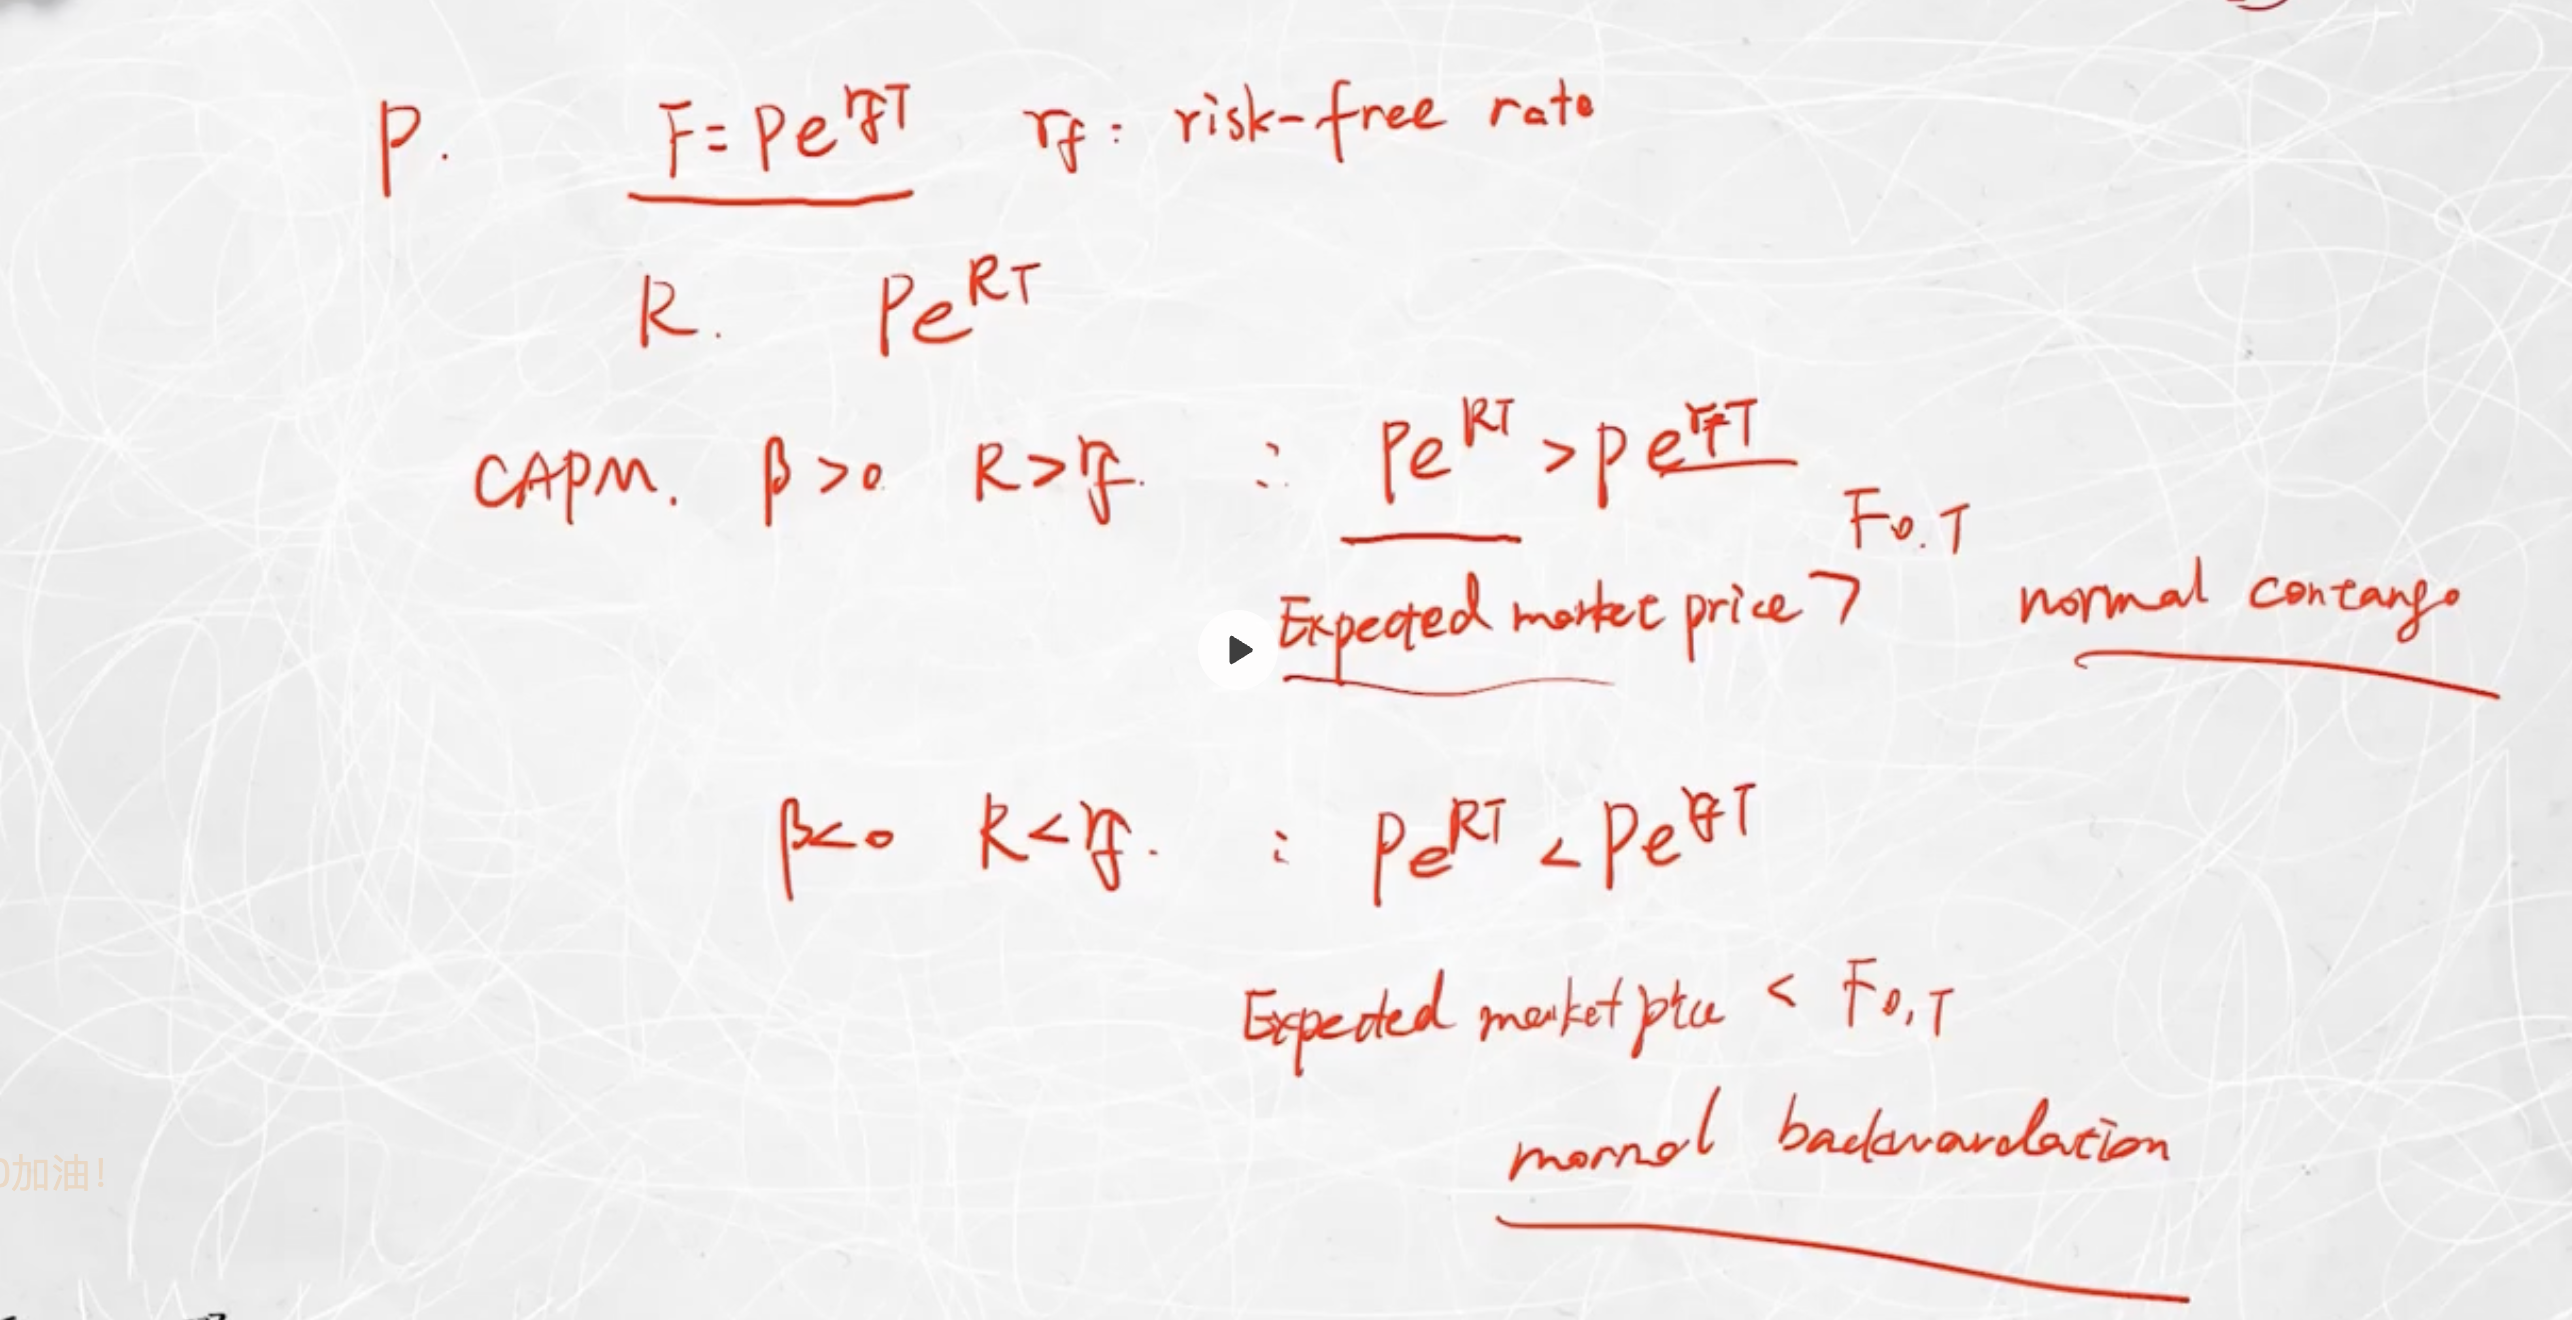 P. F=Pe^{r_f T} r_f: risk-free rate
R. Pe^{RT}
CAPM. β>0 R>r_f. ∴ Pe^{RT} > Pe^{r_f T}
F_{0.T}
Expected market price > normal contango
β<0 R<r_f. : Pe^{RT} < Pe^{r_f T}
Expected market < F_{0,T}
backwardation
加油!